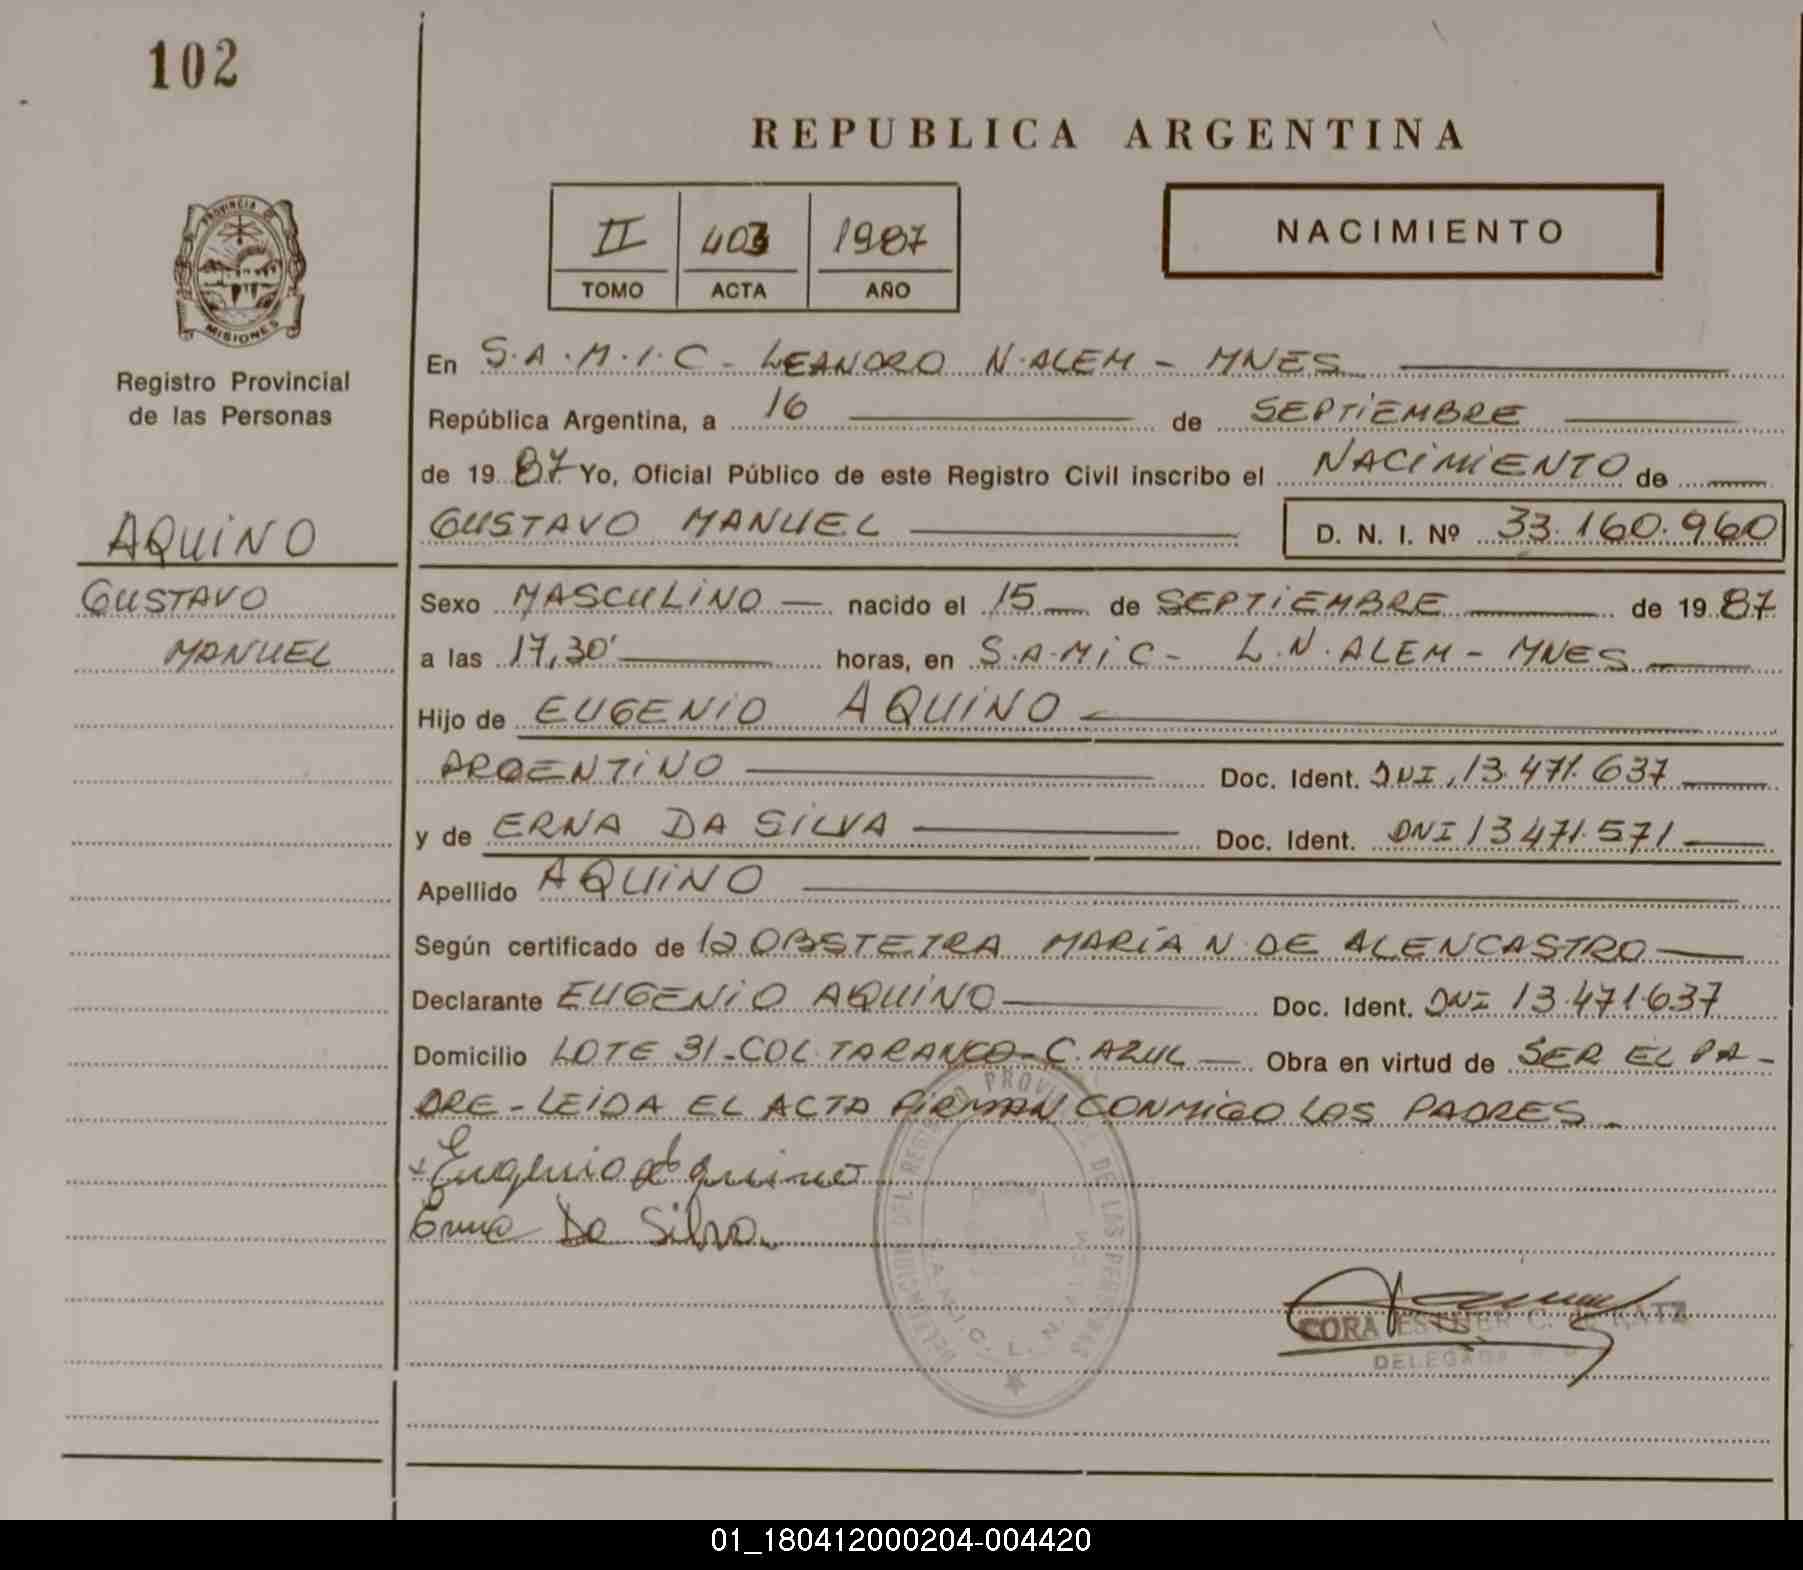 102
REPUBLICA ARGENTINA
PROVINCIA DE
MISIONES
II 403 1987
TOMO ACTA AÑO
NACIMIENTO
Registro Provincial
de las Personas
AQUINO
GUSTAVO
MANUEL
En S.A.M.I.C - LEANDRO N. ALEM - MNES
República Argentina, a 16 de SEPTIEMBRE
de 19 87 Yo, Oficial Público de este Registro Civil inscribo el NACIMIENTO de
GUSTAVO MANUEL D. N. I. Nº 33.160.960
Sexo MASCULINO nacido el 15 de SEPTIEMBRE de 19 87
a las 17,30' horas, en S.A.M.I.C - L.N. ALEM - MNES
Hijo de EUGENIO AQUINO
ARGENTINO Doc. Ident. DNI, 13.471.637
y de ERNA DA SILVA Doc. Ident. DNI 13 471.571
Apellido AQUINO
Según certificado de la OBSTETRA MARÍA N. DE ALENCASTRO
Declarante EUGENIO AQUINO Doc. Ident. DNI 13.471.637
Domicilio LOTE 31-COL. TARANCO-C. AZUL Obra en virtud de SER EL PA-
DRE - LEIDA EL ACTA FIRMAN CONMIGO LOS PADRES
Eugenio Aquino
Erna Da Silva
CORA ESTHER C. de KATZ
DELEGADA
01_180412000204-004420